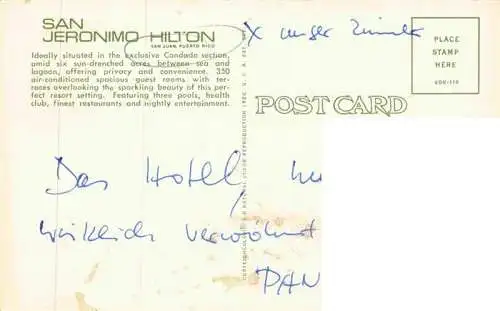 SAN
JERONIMO HILTON
SAN JUAN, PUERTO RICO
Ideally situated in the exclusive Condado section,
amid six sun-drenched acres between sea and
lagoon, offering privacy and convenience. 350
air-conditioned spacious guest rooms with ter-
races overlooking the sparkling beauty of this per-
fect resort setting. Featuring three pools, health
club, finest restaurants and nightly entertainment.
X unser Zimmer
PLACE
STAMP
HERE
POST CARD
Das Hotel,
wirklich verwöhnt
PAN